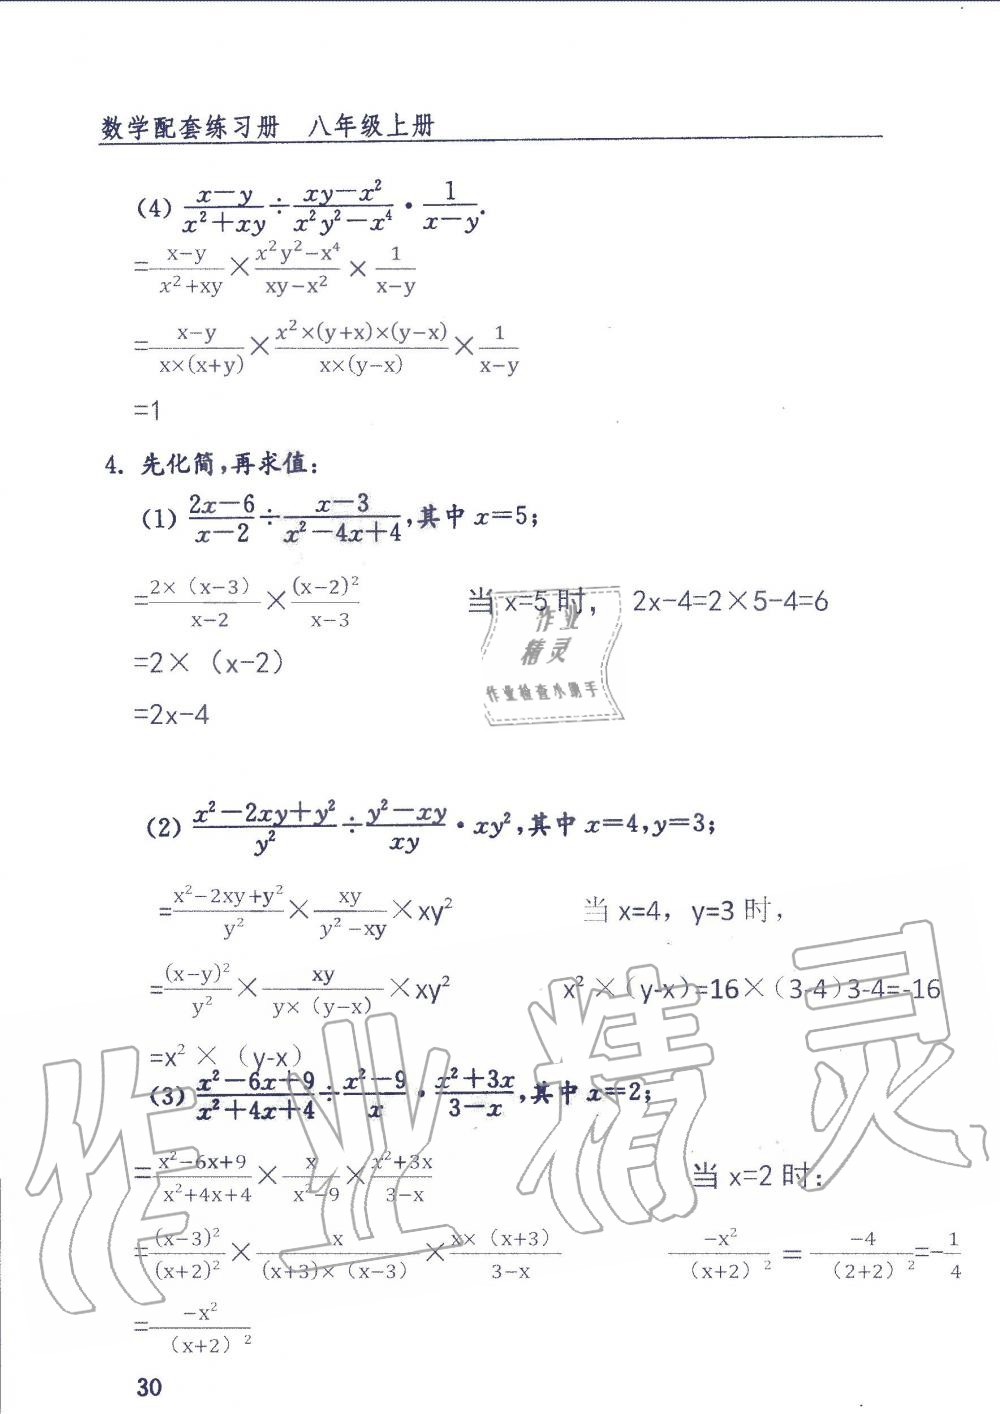 数学配套练习册 八年级上册
(4) \frac{x-y}{x^2+xy}÷\frac{xy-x^2}{x^2y^2-x^4}·\frac{1}{x-y}.
=\frac{x-y}{x^2+xy}×\frac{x^2y^2-x^4}{xy-x^2}×\frac{1}{x-y}
=\frac{x-y}{x×(x+y)}×\frac{x^2×(y+x)×(y-x)}{x×(y-x)}×\frac{1}{x-y}
=1
4. 先化简,再求值:
(1) \frac{2x-6}{x-2}÷\frac{x-3}{x^2-4x+4},其中 x=5;
=\frac{2×（x-3）}{x-2}×\frac{(x-2)^2}{x-3} 当 x=5 时， 2x-4=2×5-4=6
=2×（x-2）
=2x-4
作业
精灵
作业检查小助手
(2) \frac{x^2-2xy+y^2}{y^2}÷\frac{y^2-xy}{xy}·xy^2,其中 x=4,y=3;
=\frac{x^2-2xy+y^2}{y^2}×\frac{xy}{y^2-xy}×xy^2 当 x=4，y=3 时，
=\frac{(x-y)^2}{y^2}×\frac{xy}{y×（y-x)}×xy^2 x^2×（y-x)=16×（3-4）3-4=-16
=x^2×（y-x）
(3) \frac{x^2-6x+9}{x^2+4x+4}÷\frac{x^2-9}{x}·\frac{x^2+3x}{3-x},其中 x=2;
=\frac{x^2-6x+9}{x^2+4x+4}×\frac{x}{x^2-9}×\frac{x^2+3x}{3-x} 当 x=2 时：
=\frac{(x-3)^2}{(x+2)^2}×\frac{x}{(x+3)×（x-3）}×\frac{x×（x+3)}{3-x} \frac{-x^2}{(x+2）^2}=\frac{-4}{(2+2）^2}=-\frac{1}{4}
=\frac{-x^2}{（x+2）^2}
作业精灵
30